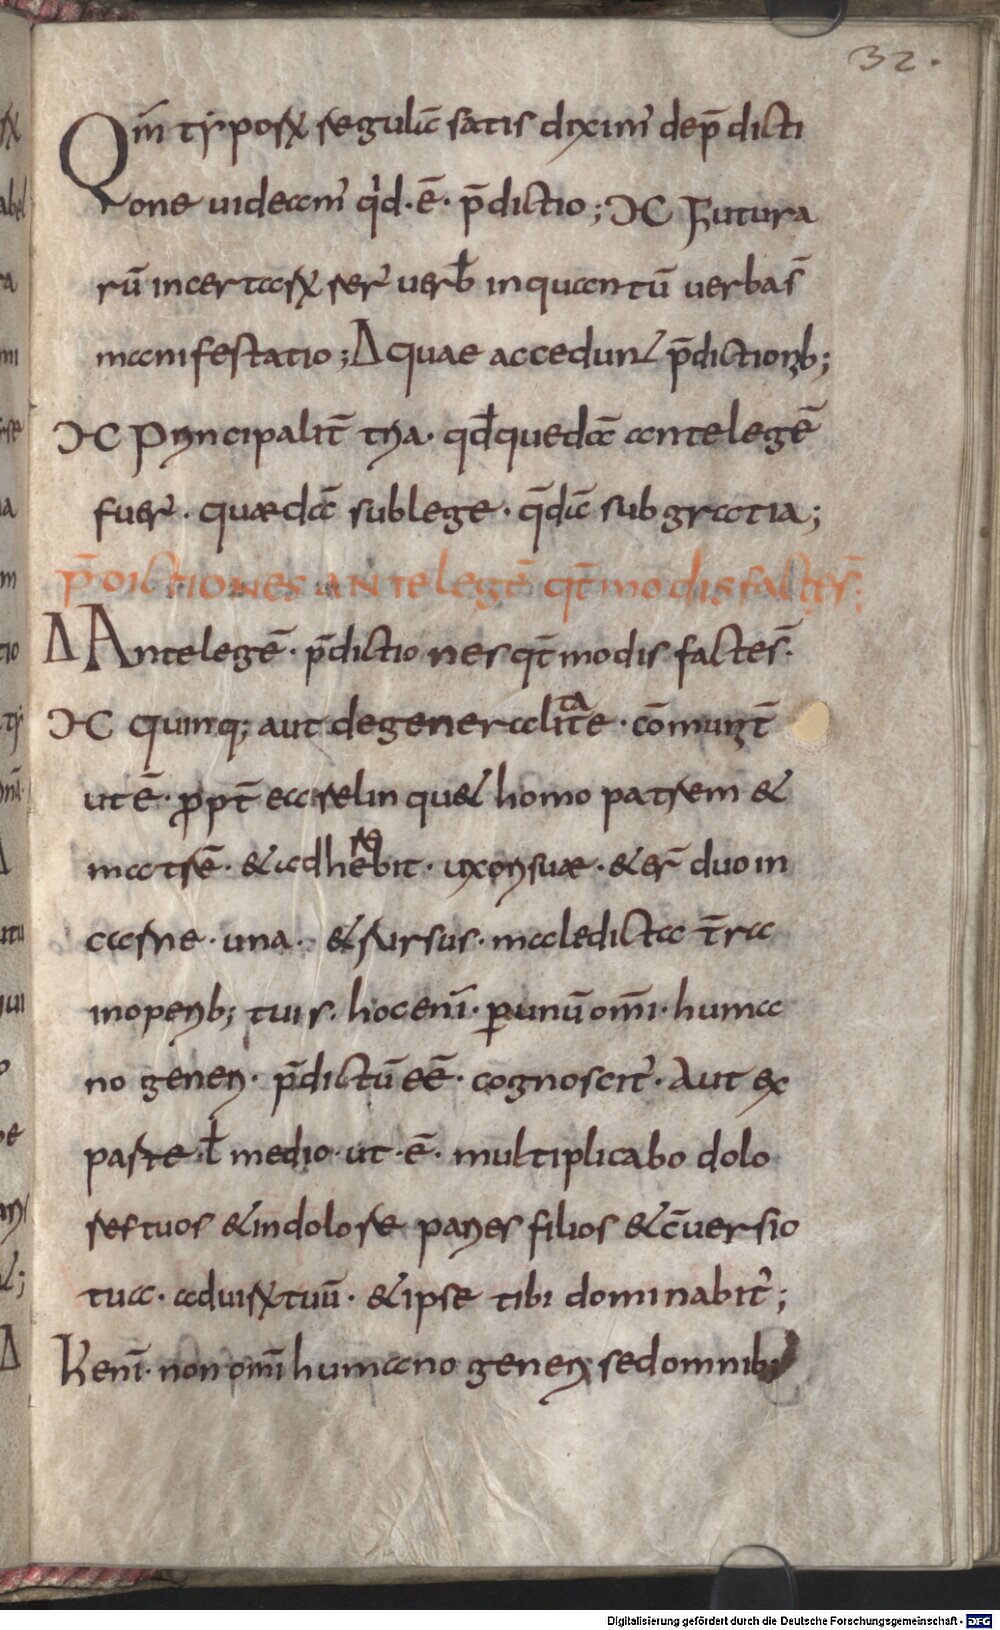 32.
Qm̄ typorum regulā satis diximꝰ de p̄dicti
one uideamꝰ qid · ē · p̄dictio ; ⲘC Futura
rū incertarum rerū uerƀ inquantū uerbas̄
manifestatio ; Δ quae accedunt p̄dictionib;
ⲘC Principalit̄ tria · qđ quedā ante legē
fuer̄ · quædā sub lege · q̄dā sub gratia ;
P̄DICTIONES ANTE legē qt̄ modis factes̄ ;
Δ Ante legē · p̄dictiones qt̄ modis factes̄ ·
ⲘC Quinq; aut de generalitate · cōmunit̄
ut ē · ꝓpt̄ ea relinquet homo patrem &
matrē · & adherebit · uxori suæ · & er̄ duo in
carne · una · & rursus · maledicta t̄ra
in operib; tuis · hoc enī · per unū om̄i · huma
no generi · p̄dictū eē · cognoscit̄ · Aut ex
parte ł medio · ut · ē · multiplicabo dolo
res tuos & in dolore paries filios & c̄uersio
tua · ad uirum tuū · & ipse tibi dominabit̄ ;
h enī · non om̄i humano generi sed omnib;
Digitalisierung gefördert durch die Deutsche Forschungsgemeinschaft - DFG